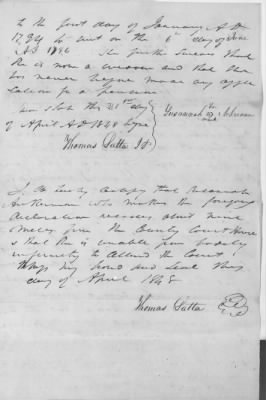 to the first day of January A D
1794 to wit on the 6th day of June
A D 1786 She further swears that
She is now a widow and that she
has never before made any appli
cation for a pension
Sworn to & sub this 21st day
of April A D 1848 before
her
Susannah X
mark
Thomas Latta J P
I do hereby certify that Susannah
who makes the foregoing
declaration resides about nine
miles from the County Court House
& that she is unable from bodily
infirmity to attend the Court
Witness my hand and seal this
day of April 1848
Thomas Latta